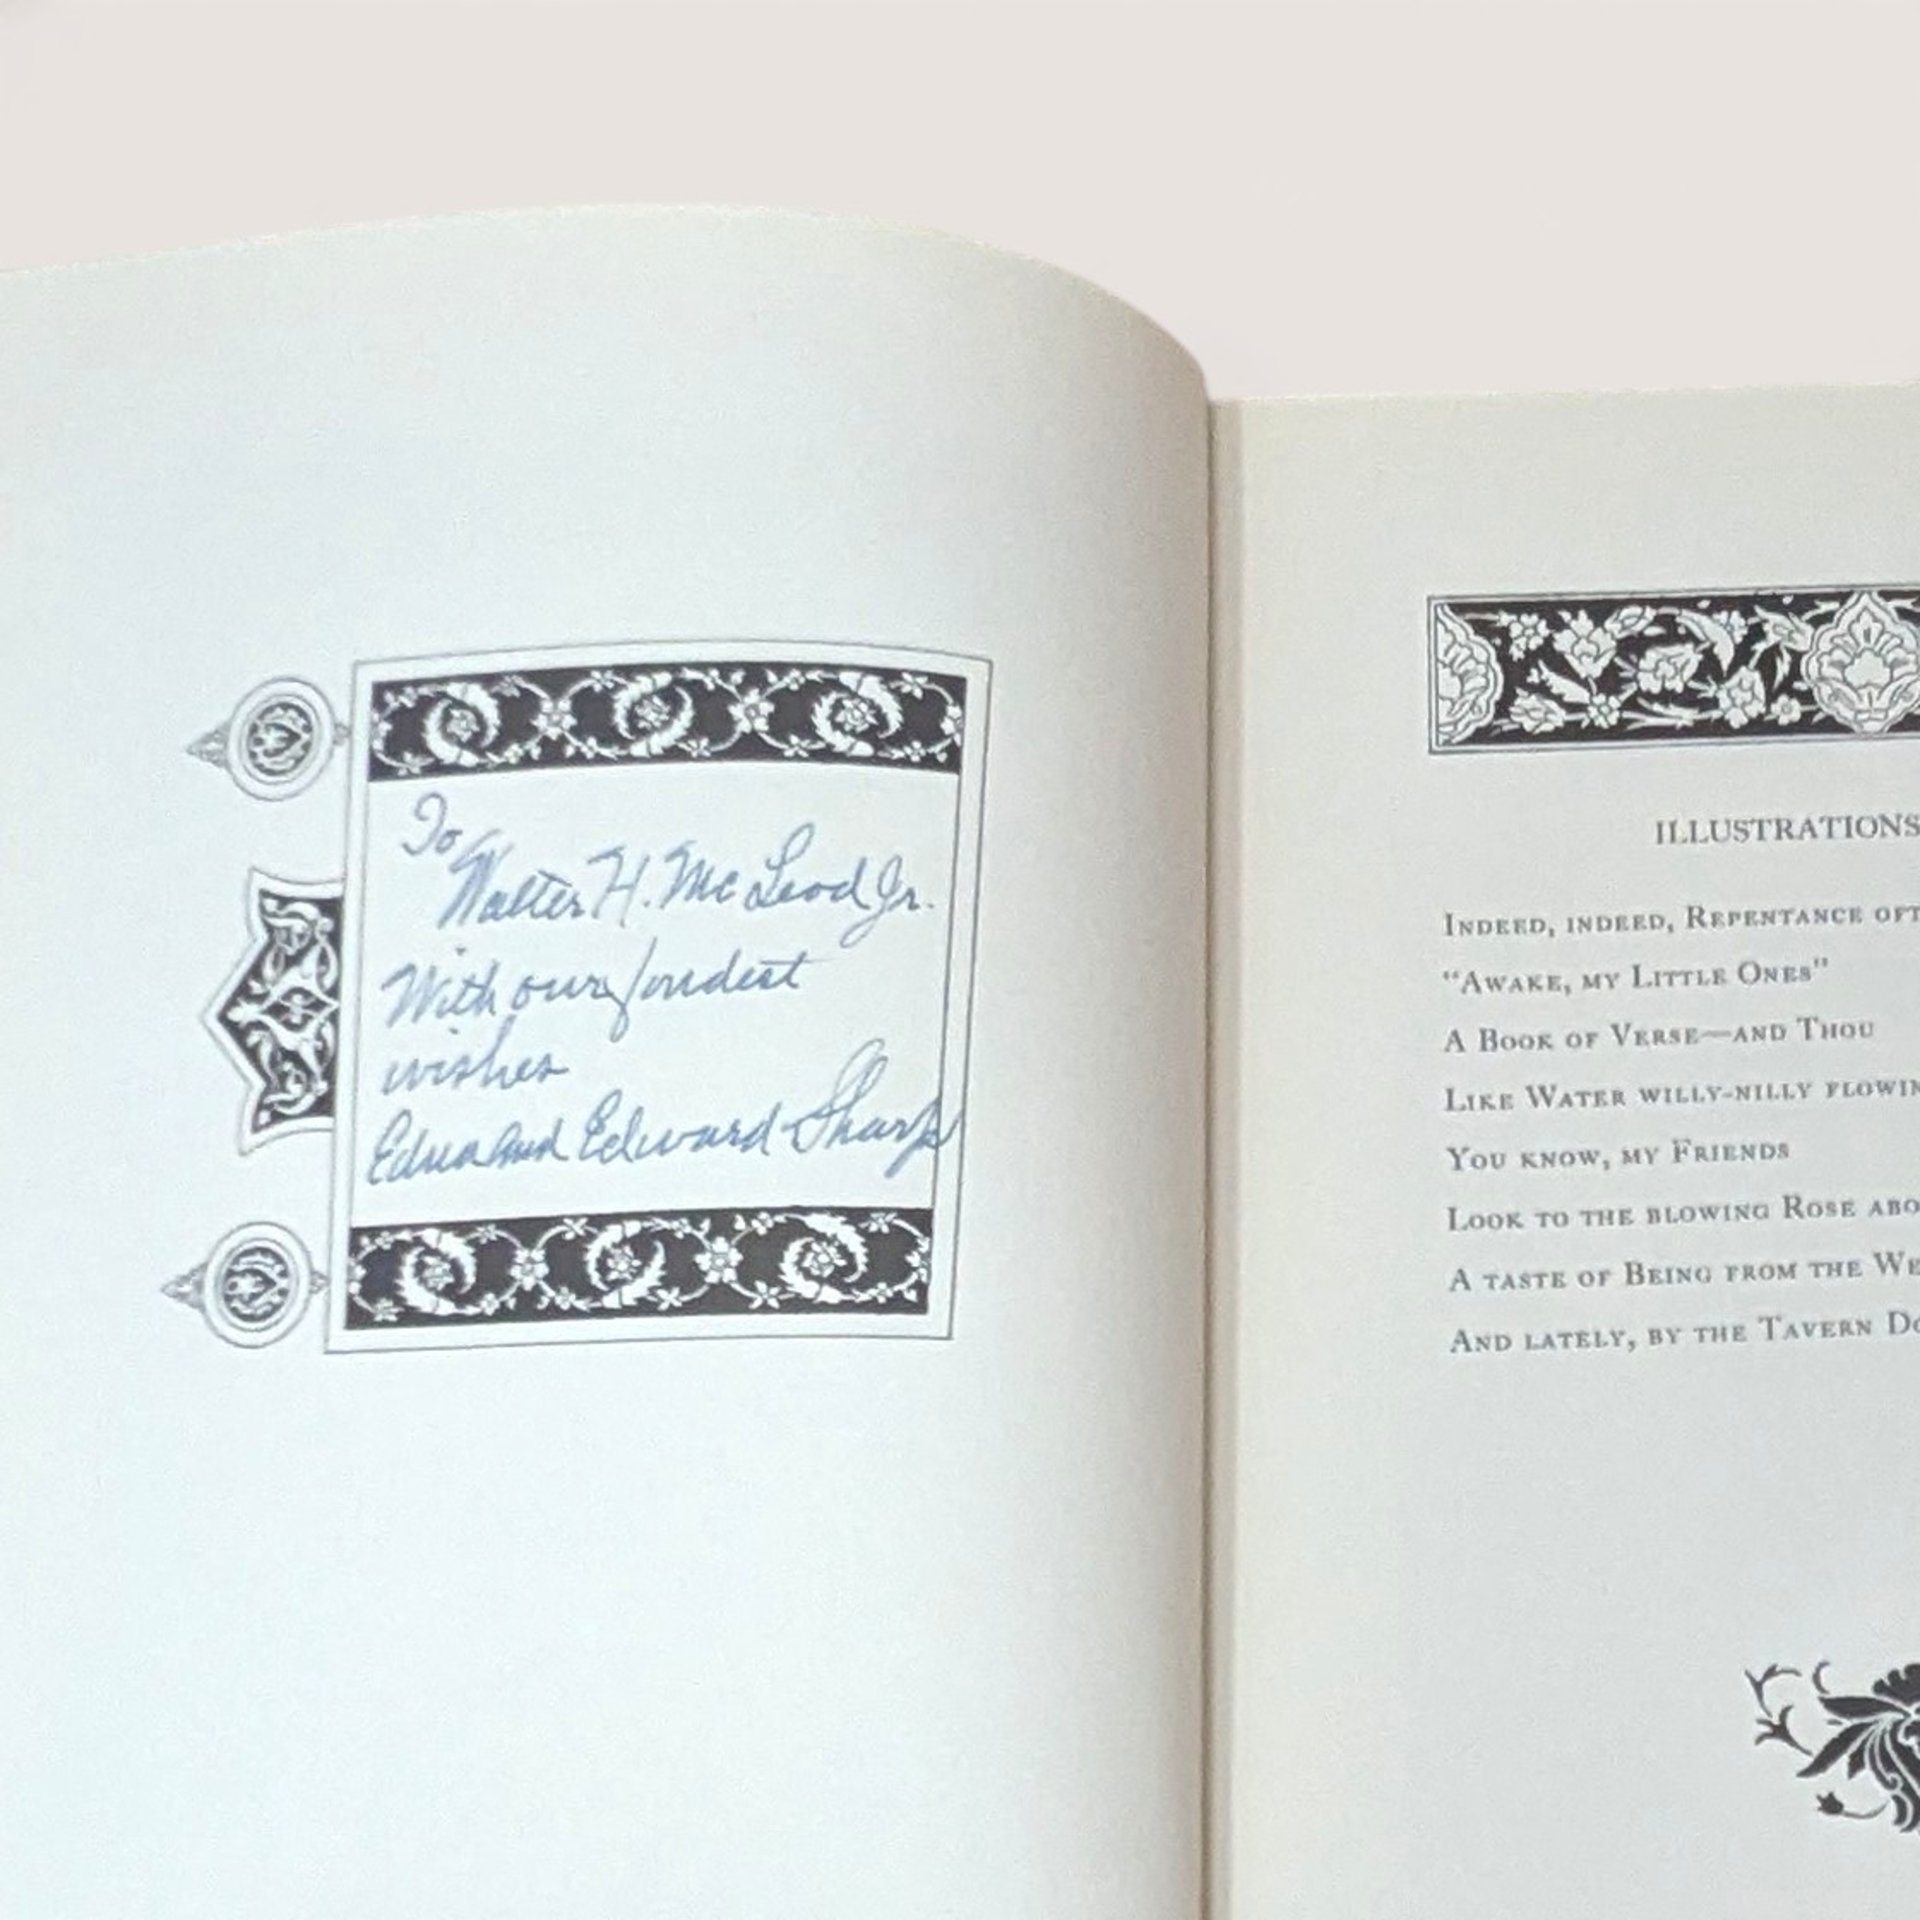 To
Walter H. McLeod Jr.
With our fondest
wishes
Edna and Edward Sharp
ILLUSTRATIONS
INDEED, INDEED, REPENTANCE OFT
"AWAKE, MY LITTLE ONES"
A BOOK OF VERSE—AND THOU
LIKE WATER WILLY-NILLY FLOWIN
YOU KNOW, MY FRIENDS
LOOK TO THE BLOWING ROSE ABO
A TASTE OF BEING FROM THE WE
AND LATELY, BY THE TAVERN DO